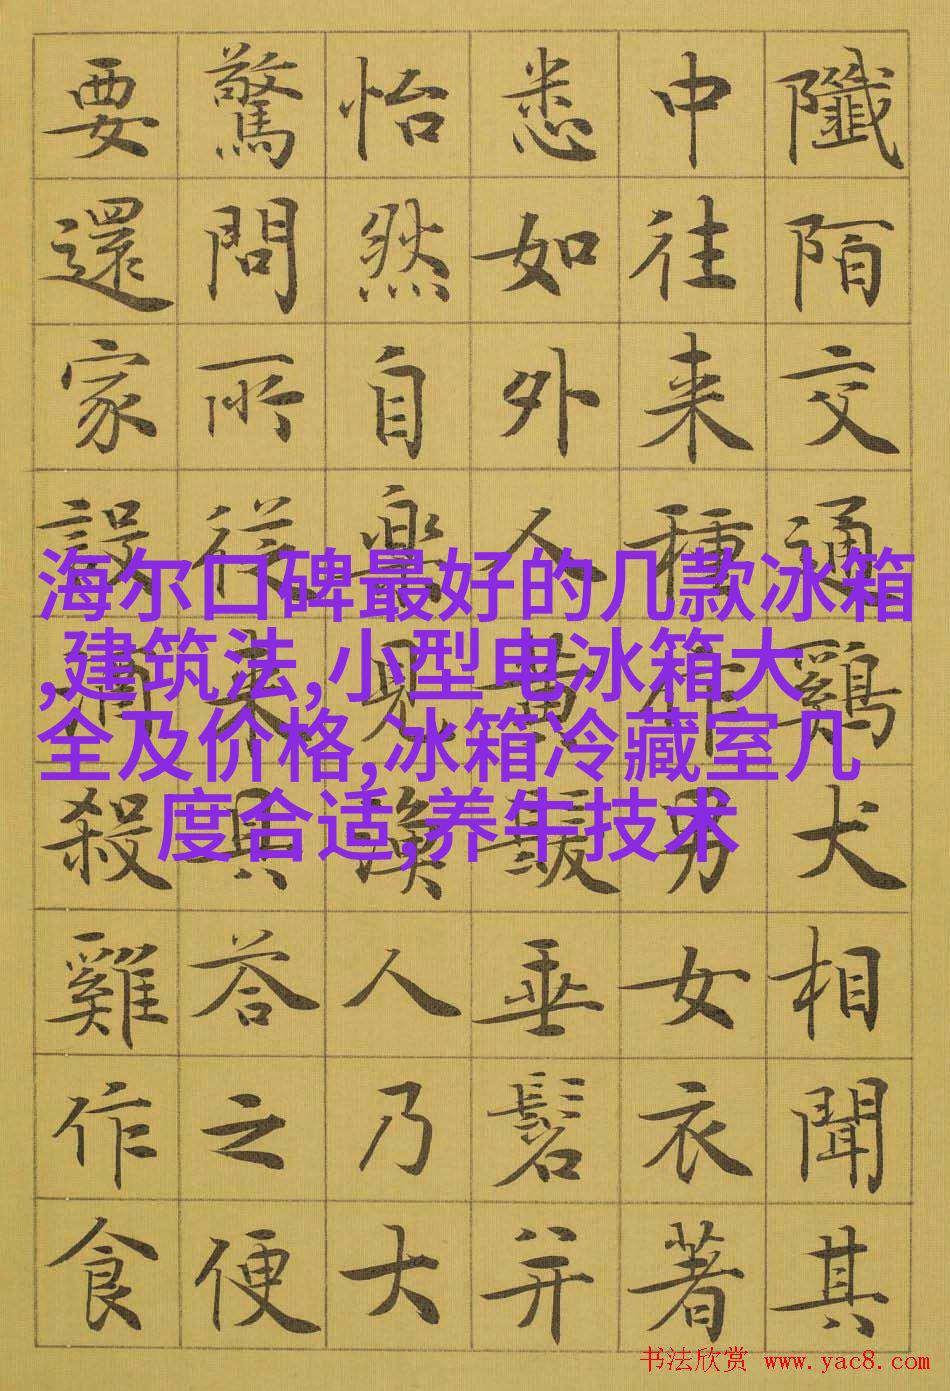 陌交通鷄犬相聞其
中往来種作男女衣著
悉如外人黄髮垂髫并
怡然自樂見漁人乃大
驚問所從来具答之便
要還家設酒殺雞作食
海尔口碑最好的几款冰箱
,建筑法,小型电冰箱大
全及价格,冰箱冷藏室几
度合适,养牛技术
书法欣赏 www.yac8.com